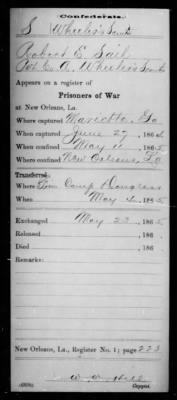 Confederate.
S Wheeler's Scouts
Robert E. Sail
Pvt Co A, Wheeler's Scouts
Appears on a register of
Prisoners of War
at New Orleans, La.
Where captured Marietta Ga
When captured June 27, 1864
When confined May 11, 1865
Where confined New Orleans, La
Transferred:
Where From Camp Douglas
When May 4, 1865
Exchanged May 23, 1865
Released , 186
Died , 186
Remarks:
New Orleans, La., Register No. 1; page 223
Copyist.